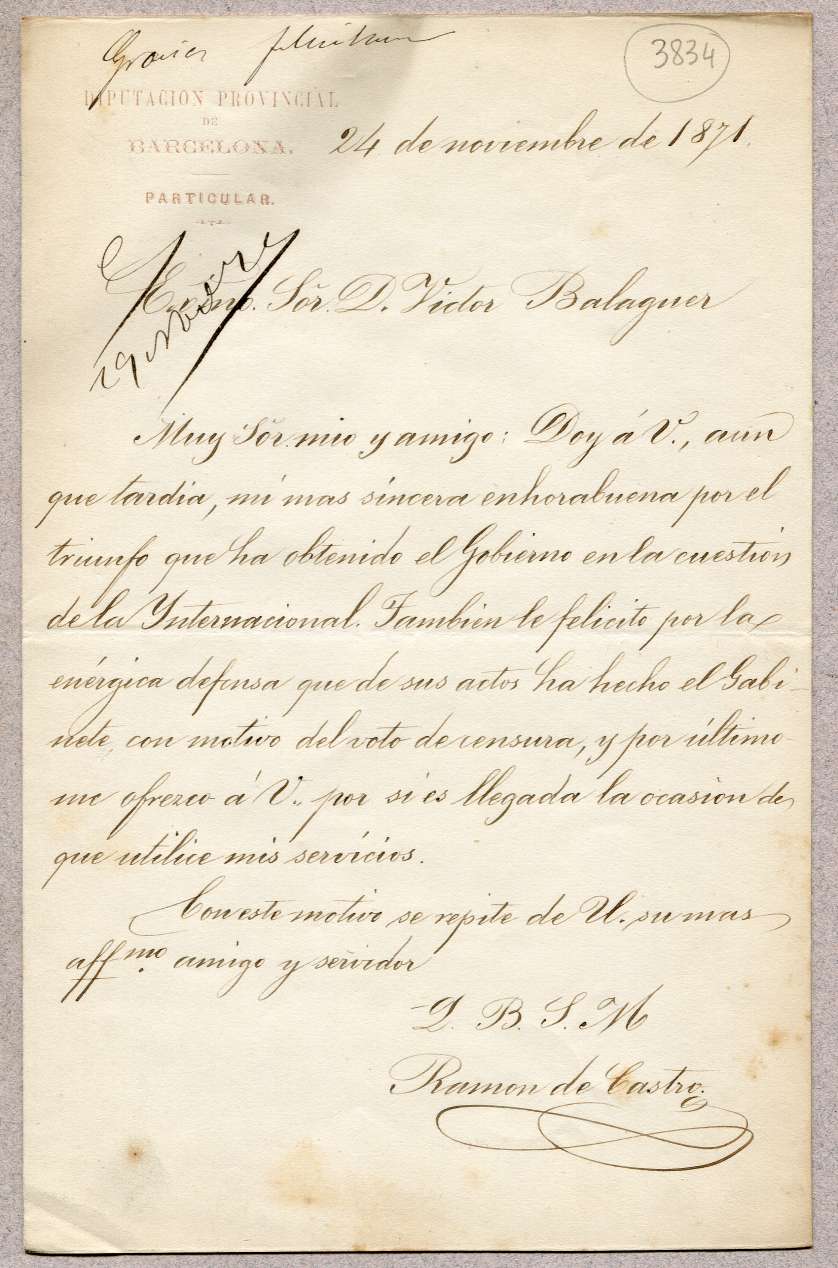 Gracias
3834
DIPUTACION PROVINCIAL
DE
BARCELONA.
PARTICULAR.
24 de noviembre de 1871.
Excmo. Sör. D. Victor Balaguer
29 Nobre
Muy Sör. mio y amigo: Doy á V., aun
que tardia, mi mas sincera enhorabuena por el
triunfo que ha obtenido el Gobierno en la cuestion
de la Ynternacional. Tambien le felicito por la
enérgica defensa que de sus actos ha hecho el Gabi-
nete, con motivo del voto de censura, y por último
me ofrezco á V., por si es llegada la ocasion de
que utilice mis servicios.
Con este motivo se repite de U. su mas
aff.mo amigo y servidor
Q. B. S. M
Ramon de Castro.